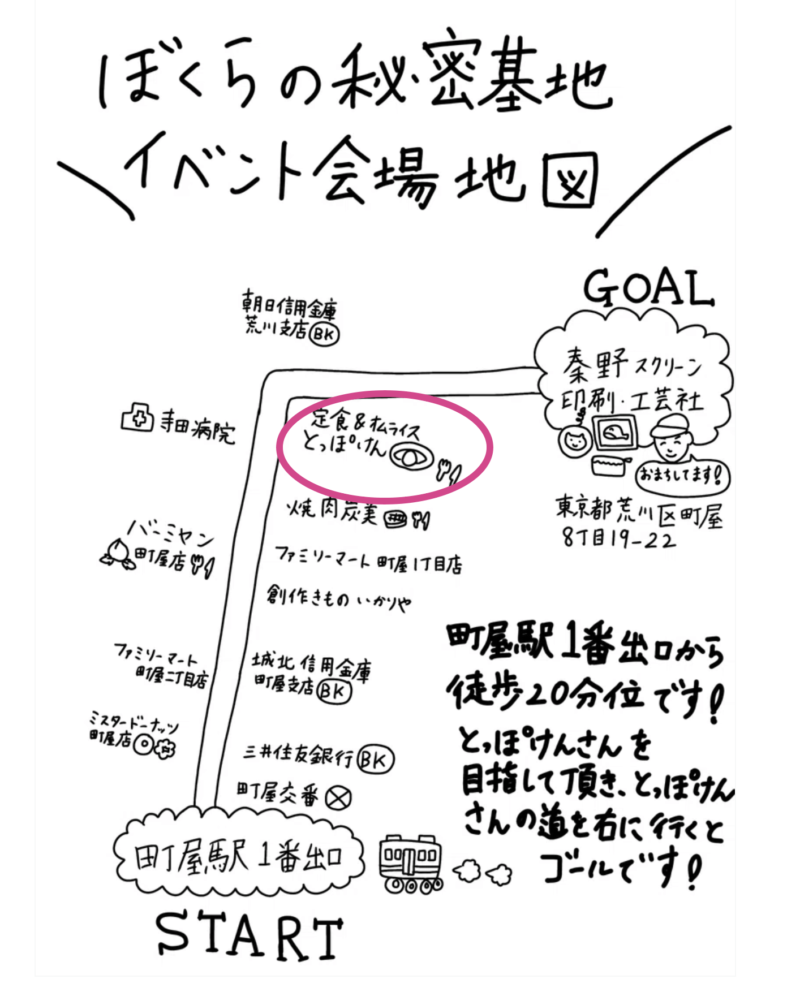 ぼくらの秘密基地
イベント会場地図
GOAL
朝日信用金庫
荒川支店 BK
秦野スクリーン
印刷・工芸社
おまちしてます!
東京都荒川区町屋
8丁目19-22
定食&オムライス
とっぽけん
寺田病院
焼肉炭美
バーミヤン
町屋店
ファミリーマート 町屋1丁目店
創作きもの いかりや
ファミリーマート
町屋二丁目店
城北信用金庫
町屋支店 BK
ミスタードーナッツ
町屋店
三井住友銀行 BK
町屋交番
町屋駅1番出口
START
町屋駅1番出口から
徒歩20分位です!
とっぽけんさんを
目指して頂き、とっぽけん
さんの道を右に行くと
ゴールです!